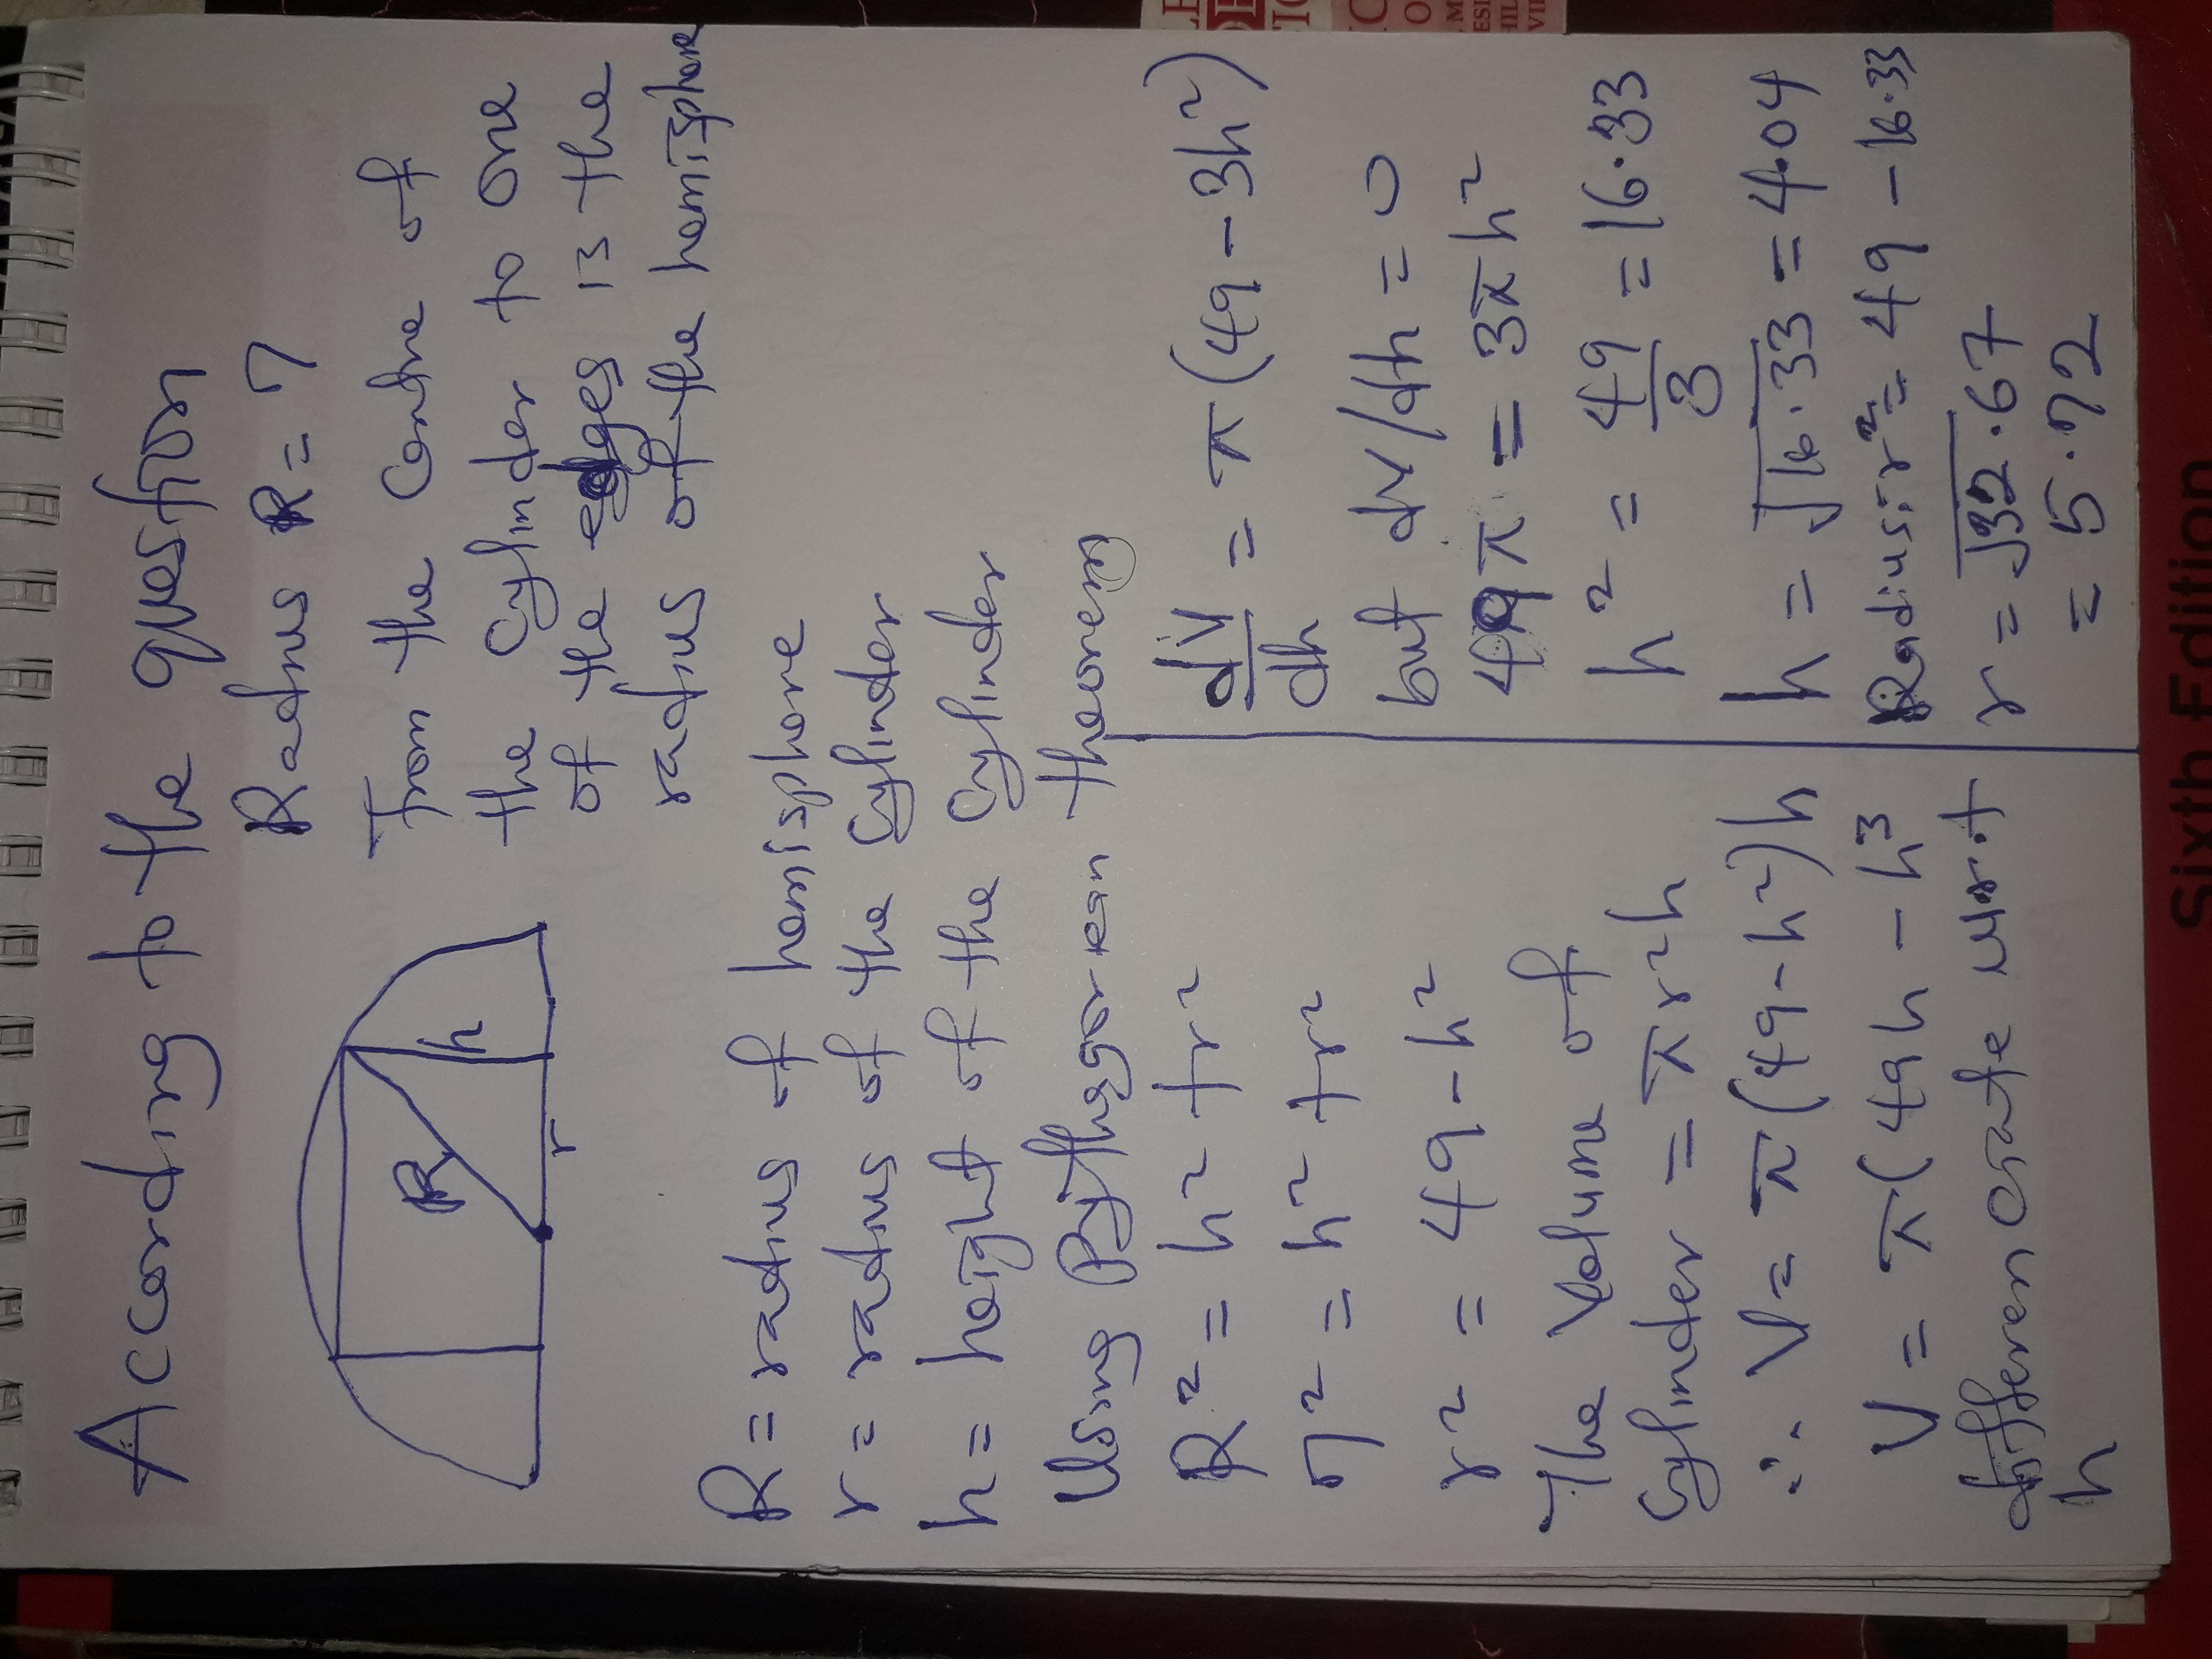 According to the question
Radius R = 7
From the Centre of
the Cylinder to one
of the edges is the
radius of the hemisphere
R
h
r
R = radius of hemisphere
r = radius of the Cylinder
h = height of the Cylinder
Using Pythagorean theorem
R² = h² + r²
7² = h² + r²
r² = 49 - h²
The Volume of
Cylinder = πr²h
∴ V = π(49-h²)h
V = π(49h - h³
differentiate w.r.t
h
dV/dh = π(49 - 3h²)
but dv/dh = 0
49π = 3πh²
h² = 49/3 = 16.33
h = √16.33 = 4.04
Radius: r² = 49 - 16.33
r = √32.67
= 5.72
Sixth Edition